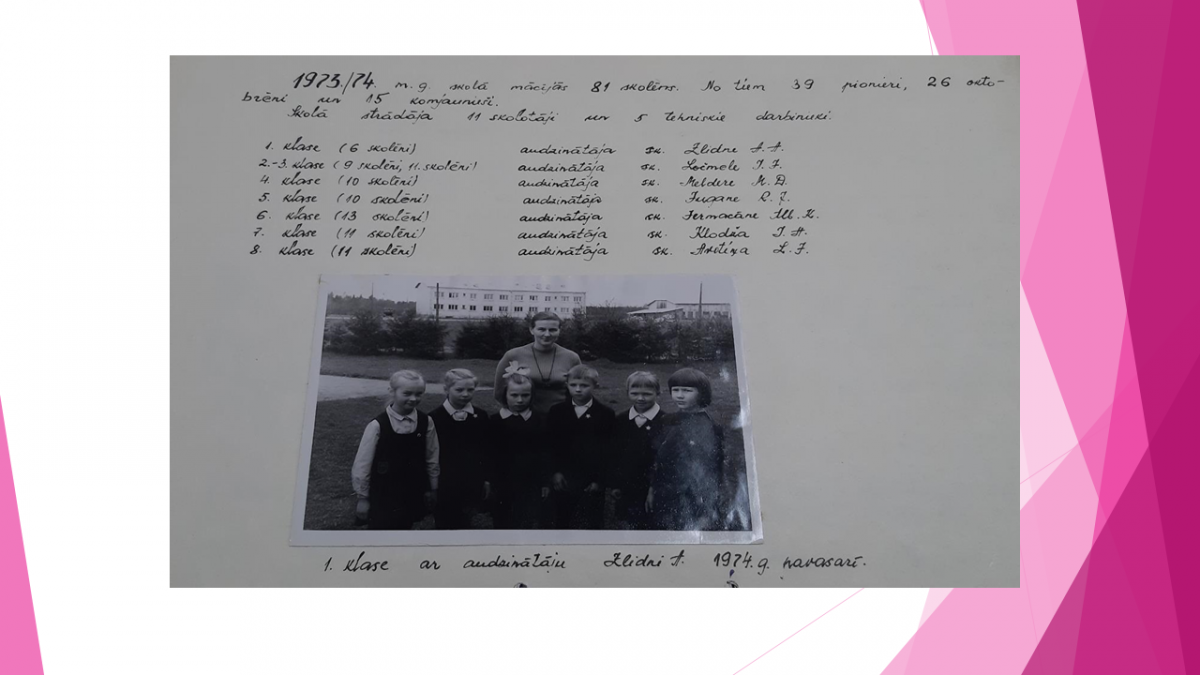 1973./74. m. g. skolā mācījās 81 skolēns. No tiem 39 pionieri, 26 okto-
brēni un 15 komjaunieši.
Skolā strādāja 11 skolotāji un 5 tehniskie darbinieki.
1. klase (6 skolēni) audzinātāja sk. Zlidne A. A.
2.-3. klase (9 skolēni, 11. skolēni) audzinātāja sk. I. J.
4. klase (10 skolēni) audzinātāja sk. Meldere M. D.
5. klase (10 skolēni) audzinātāja sk.
6. klase (13 skolēni) audzinātāja sk.
7. klase (11 skolēni) audzinātāja sk. Klodža
8. klase (11 skolēni) audzinātāja sk. L. J.
1. klase ar audzinātāju Zlidni A. 1974. g. pavasarī.